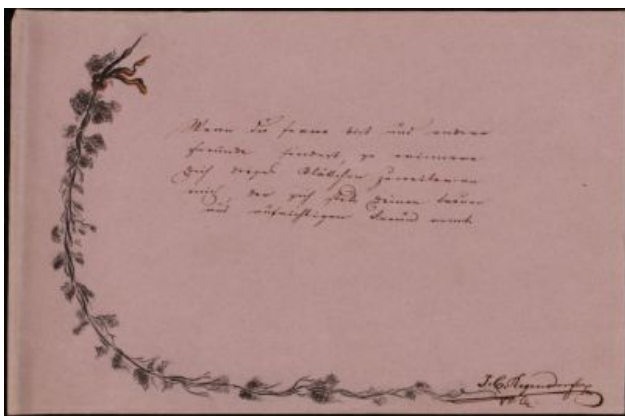 Wenn du ferne bist und andere
Freunde findest, so erinnere
Dich dieses Blättchen zuweilen an
mich, der sich stets Deinen
und aufrichtigen Freund nennt
J. C.